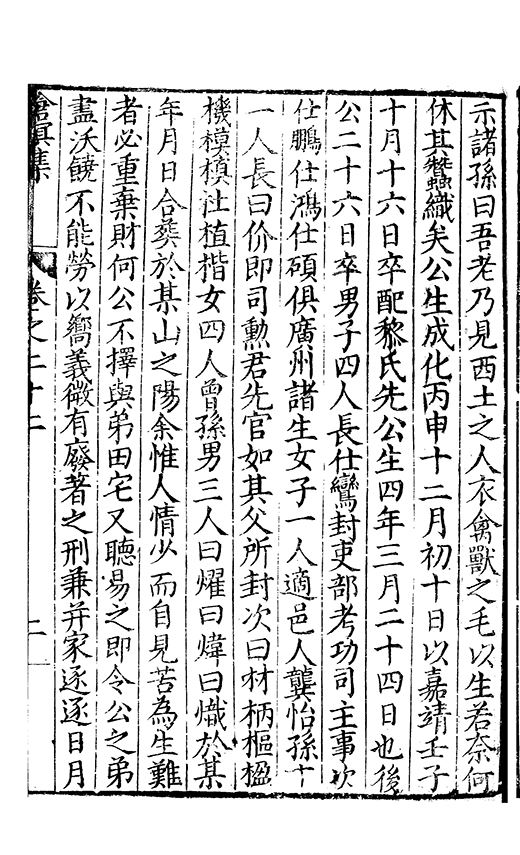 示諸孫曰吾老乃見西土之人衣禽獸之毛以生若奈何
休其蠶織矣公生成化丙申十二月初十日以嘉靖壬子
十月十六日卒配黎氏先公生四年三月二十四日也後
公二十六日卒男子四人長仕鸞封吏部考功司主事次
仕鵬仕鴻仕碩俱廣州諸生女子一人適邑人龔怡孫十
一人長曰价即司勳君先官如其父所封次曰材柄樞楹
機模槙社植楷女四人曾孫男三人曰燿曰煒曰熾於某
年月日合葬於某山之陽余惟人情少而自見苦為生難
者必重棄財何公不擇與弟田宅又聽易之即令公之弟
盡沃饒不能勞以嚮義微有廢著之刑兼并家逐逐日月
滄溟集 卷之二十二 二